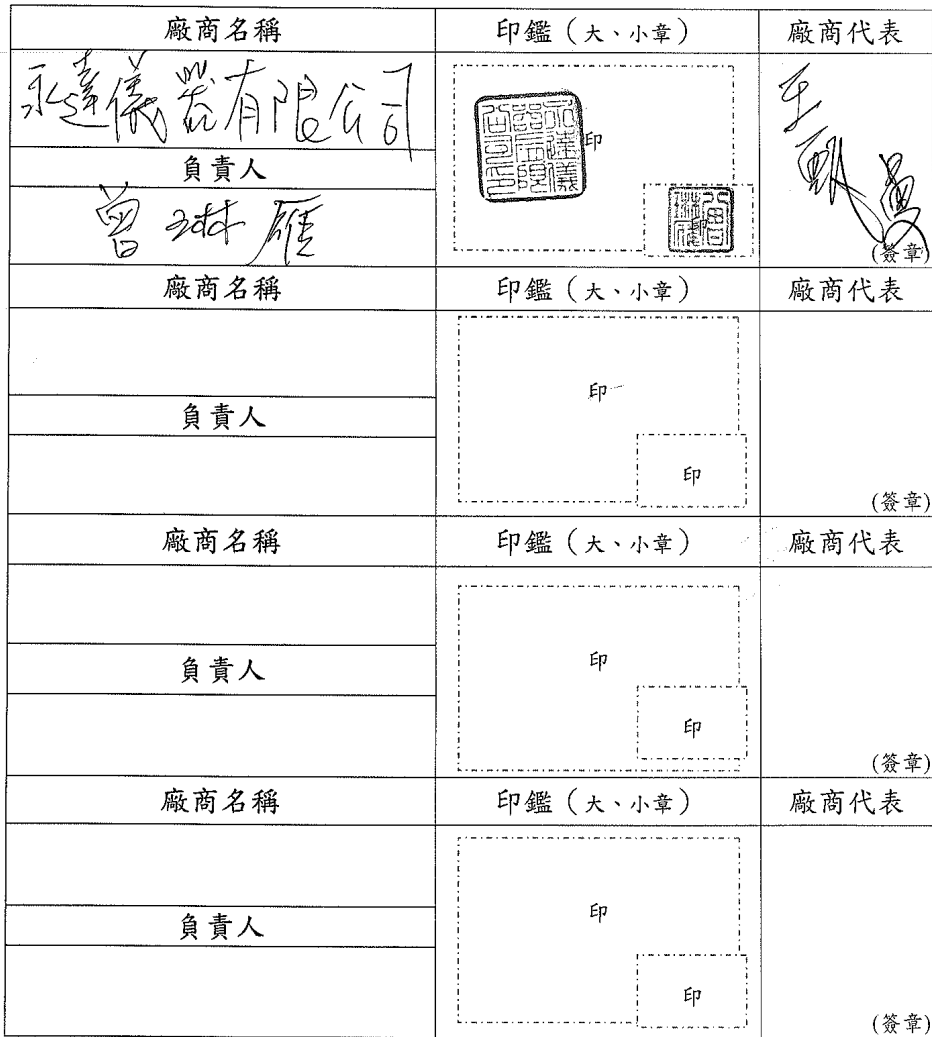 廠商名稱 印鑑（大、小章） 廠商代表
永達儀器有限公司
印
永達儀器有限公司印
負責人
曾琳雁
(簽章)
廠商名稱 印鑑（大、小章） 廠商代表
印
負責人
印
(簽章)
廠商名稱 印鑑（大、小章） 廠商代表
印
負責人
印
(簽章)
廠商名稱 印鑑（大、小章） 廠商代表
印
負責人
印
(簽章)